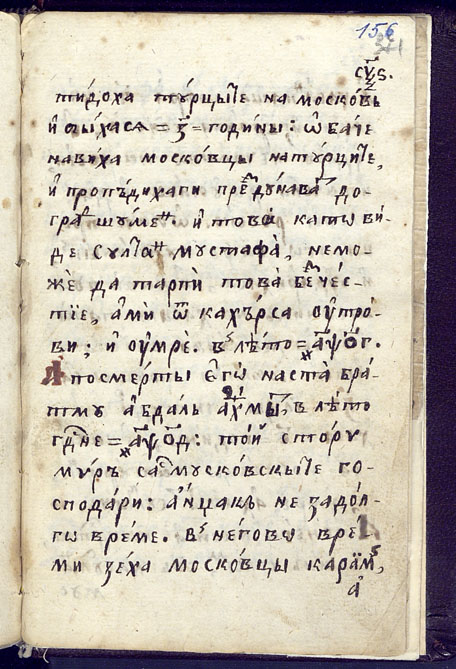 156
321
сѵ҃ѕ.
тидоха турцыте на моско́вь
и быхася = ѕ҃ = години: ѡ҆баче
навиха московцы натурците,
и҆ пропѣдихаги пред̾ дунава до-
гра́д̾ шуме́н и҆ това̀ катѡ ви-
де султа́н мустафа̀, немо-
жѐ да тарпѝ това̀ бе́з̾чес-
тїе, а҆мѝ ѿ кахърса оу҆тро́-
ви; и҆ оу҆мрѐ. в̾ лѣто = а҃ѱо҃г.
А посмерты є҆гѡ̀ наста̀ бра-
тму а҆вдаль а҆хмы́д̾, в лѣто
гд҃не = а҃ѱо҃д: той сторѝ
миръ са́с̾ муско́вскыте го-
сподари: а҆нцакъ не задол-
гѡ вре́ме. в̾ неговѡ вре
ми зеха московцы карїм,
а҆